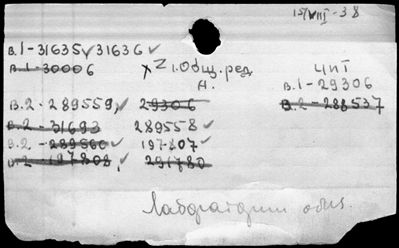 15/VIII-38
В.1-31635 ✓ 31636 ✓
В.1-30006 × 21.Общ.ред ЧИТ
А. В.1-29306
В.2-289559, ✓ 29306 В.2-288537
В.2-31693 289558 ✓
В.2-289560 ✓ 197807 ✓
В.2-197808, ✓ 291780
Лаборатории